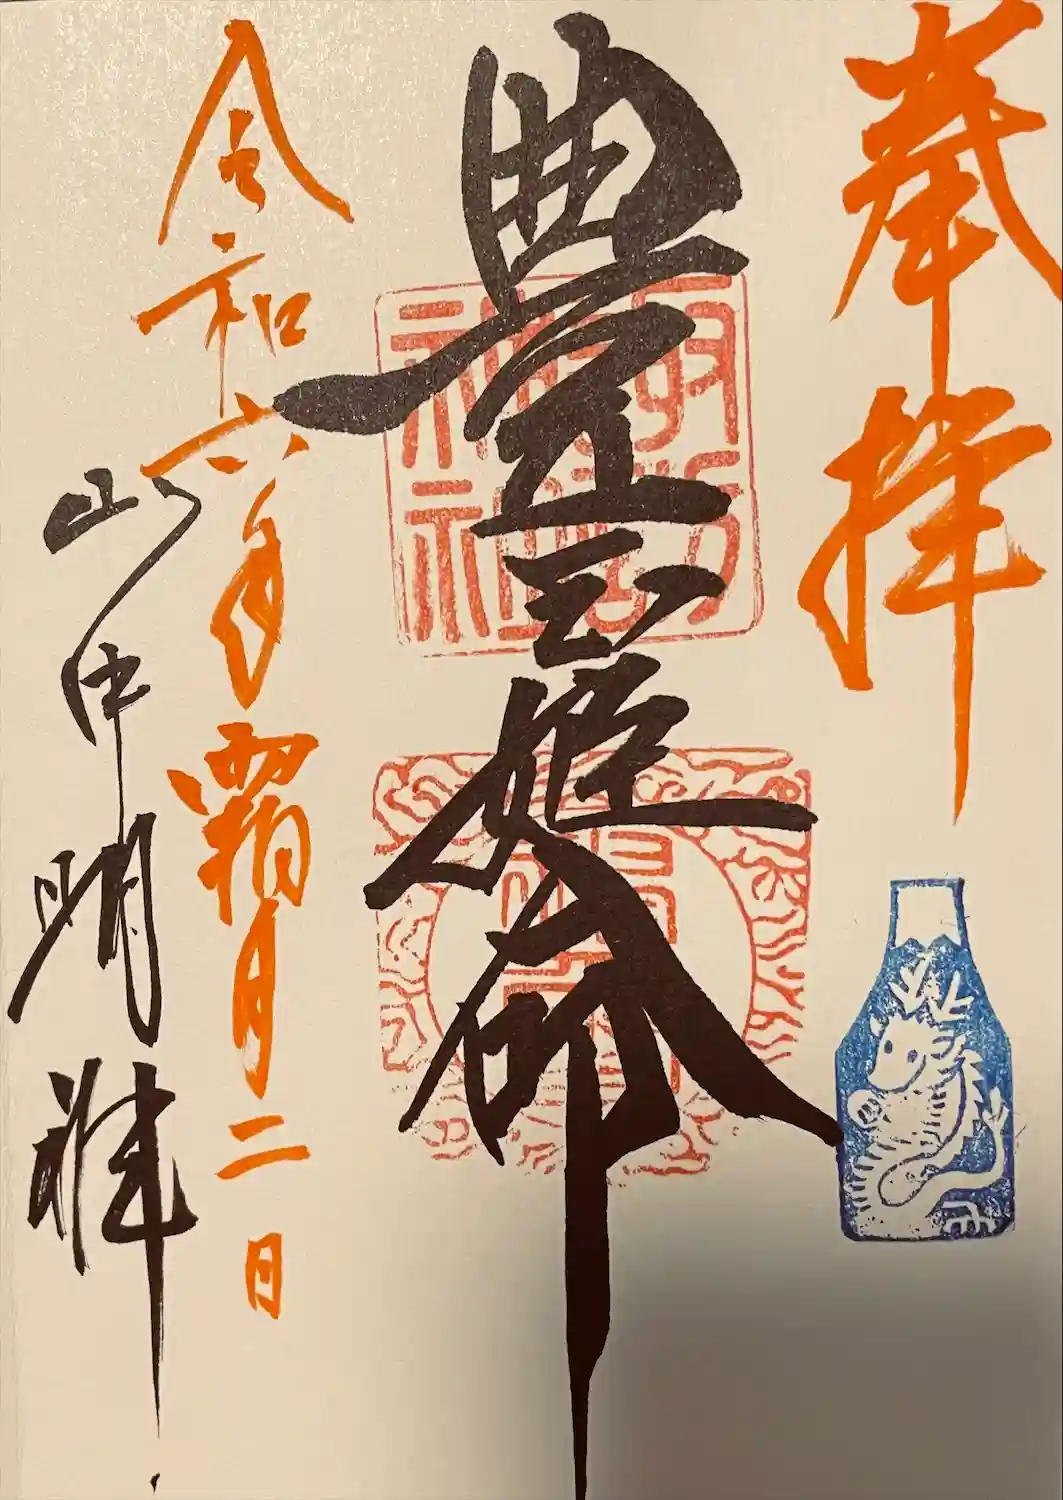 奉拝
豊玉姫命
令和六年霜月二日
山中明祥